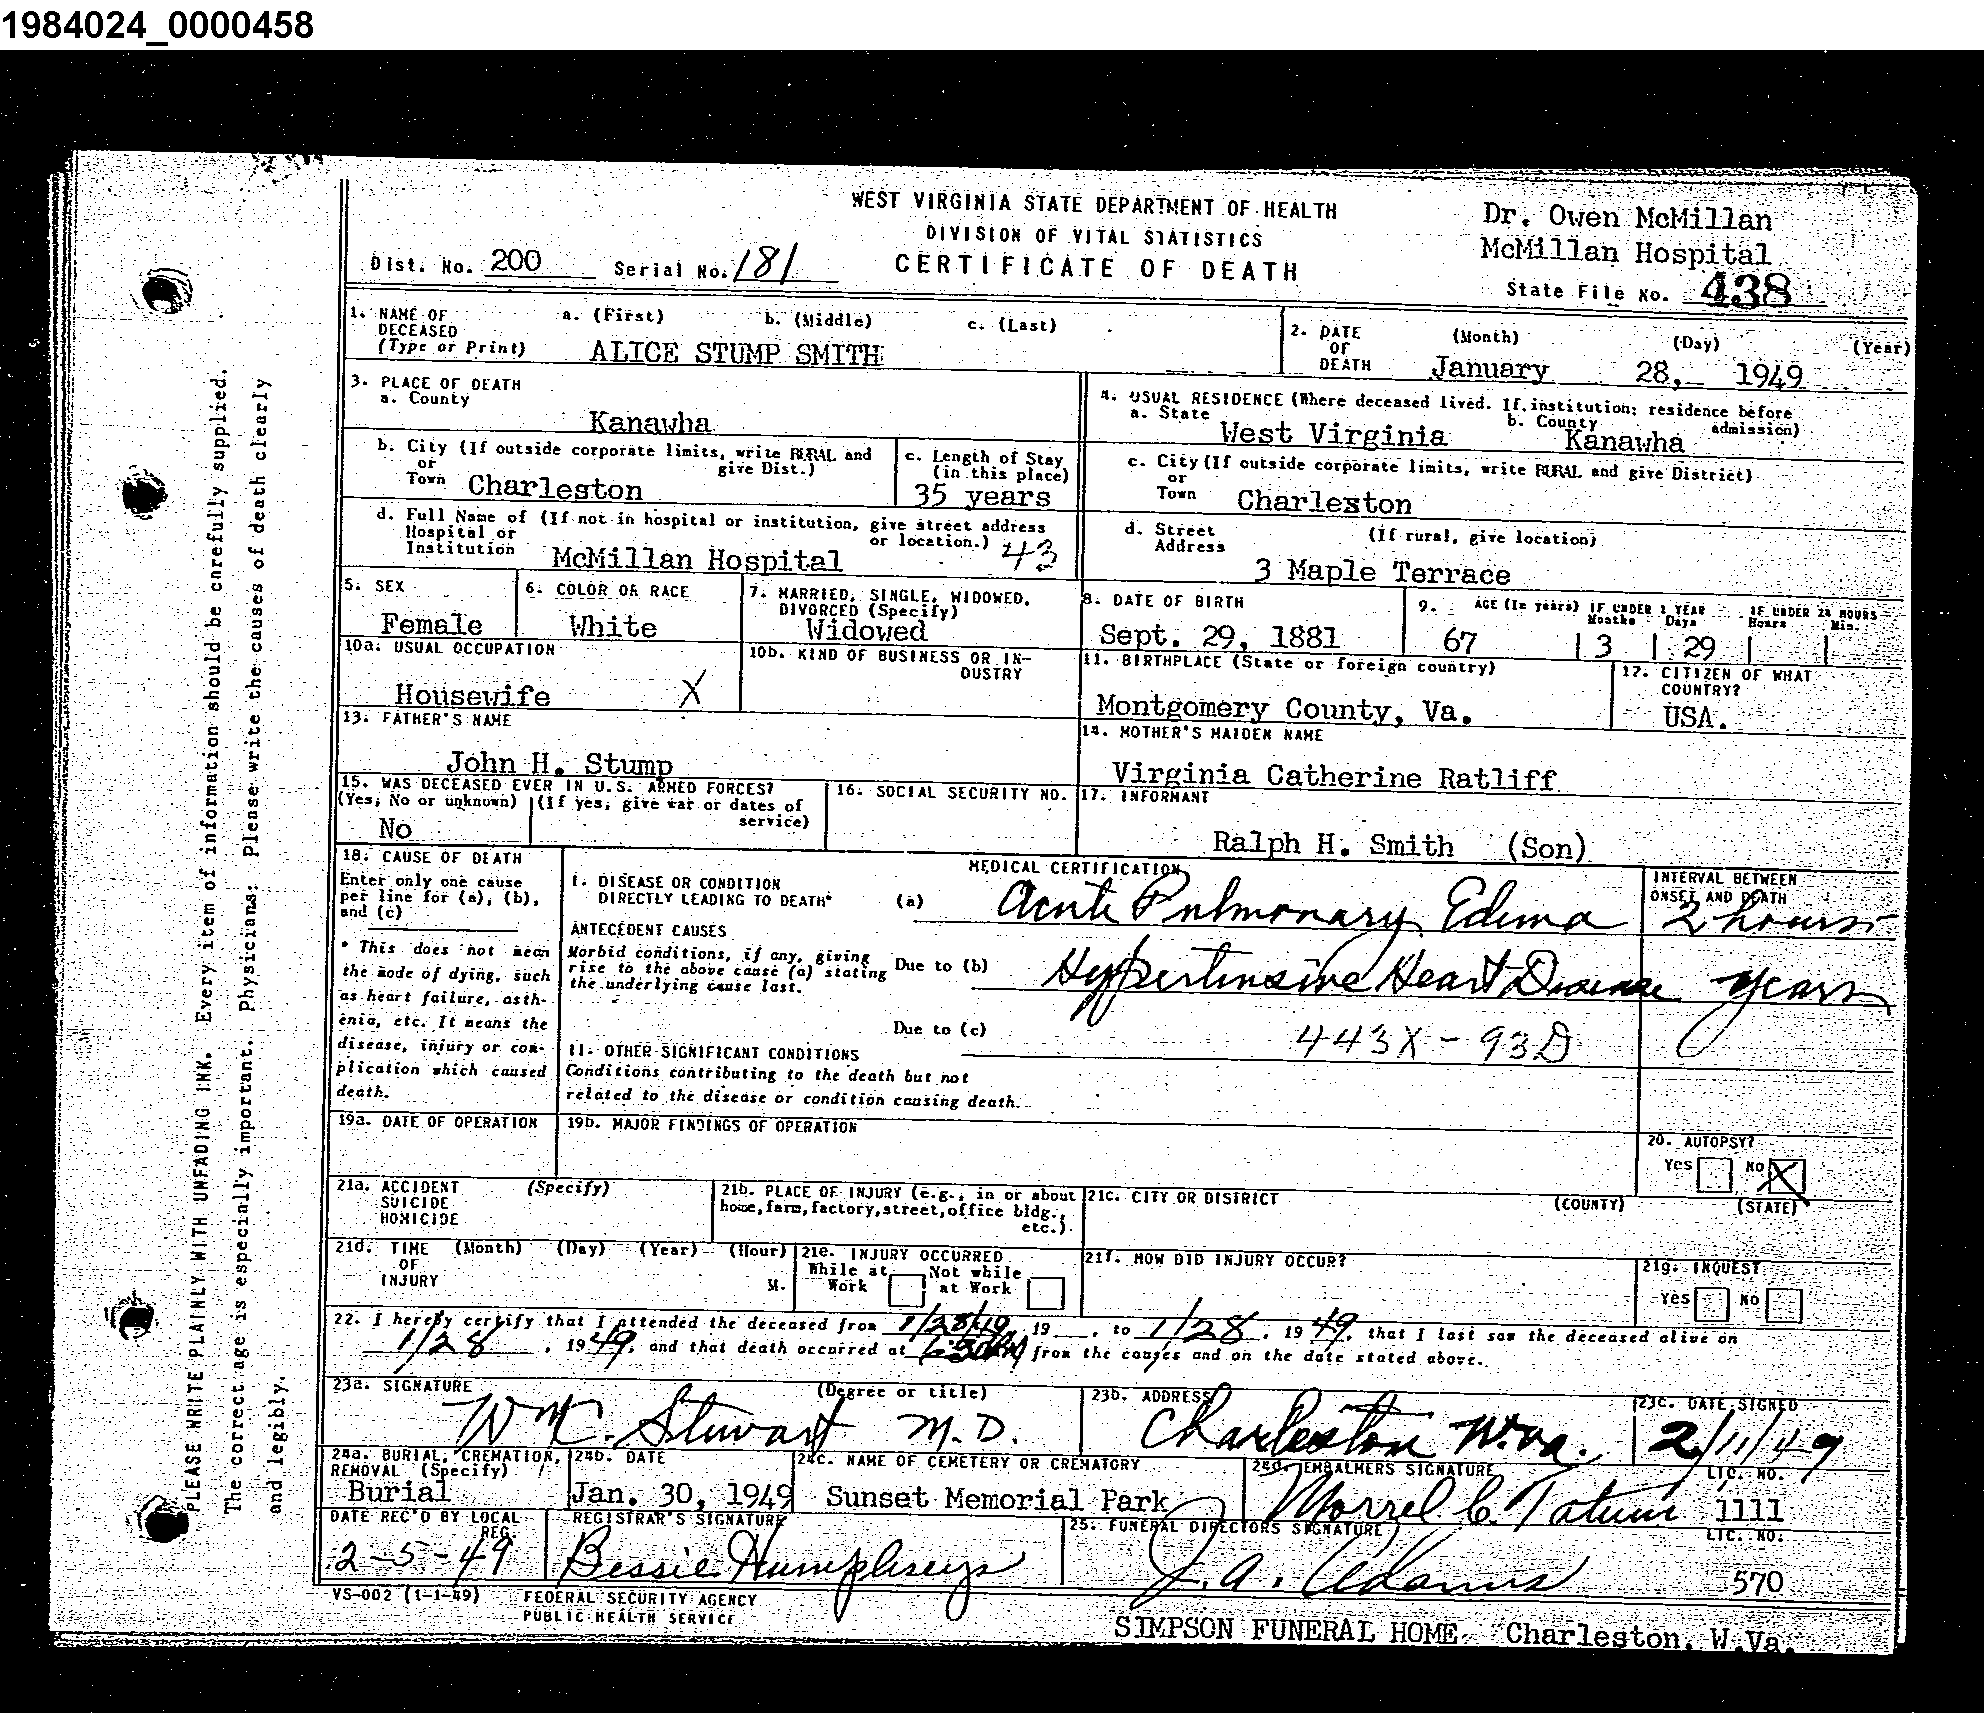 1984024_0000458
WEST VIRGINIA STATE DEPARTMENT OF HEALTH
DIVISION OF VITAL STATISTICS
CERTIFICATE OF DEATH
Dr. Owen McMillan
McMillan Hospital
Dist. No. 200 Serial No. 181
State File No. 438
1. NAME OF DECEASED (Type or Print) a. (First) b. (Middle) c. (Last)
ALICE STUMP SMITH
2. DATE OF DEATH (Month) (Day) (Year)
January 28, 1949
3. PLACE OF DEATH
a. County
Kanawha
4. USUAL RESIDENCE (Where deceased lived. If institution: residence before admission)
a. State West Virginia b. County Kanawha
b. City (If outside corporate limits, write RURAL and give Dist.)
or Town Charleston
c. Length of Stay (in this place)
35 years
c. City (If outside corporate limits, write RURAL and give District)
or Town Charleston
d. Full Name of Hospital or Institution (If not in hospital or institution, give street address or location.)
McMillan Hospital 43
d. Street Address (If rural, give location)
3 Maple Terrace
5. SEX
Female
6. COLOR OR RACE
White
7. MARRIED, SINGLE, WIDOWED, DIVORCED (Specify)
Widowed
8. DATE OF BIRTH
Sept. 29, 1881
9. AGE (In years) IF UNDER 1 YEAR Months Days IF UNDER 24 HOURS Hours Min.
67 3 29
10a. USUAL OCCUPATION
Housewife X
10b. KIND OF BUSINESS OR INDUSTRY
11. BIRTHPLACE (State or foreign country)
Montgomery County, Va.
12. CITIZEN OF WHAT COUNTRY?
USA.
13. FATHER'S NAME
John H. Stump
14. MOTHER'S MAIDEN NAME
Virginia Catherine Ratliff
15. WAS DECEASED EVER IN U.S. ARMED FORCES?
(Yes, No or unknown) (If yes, give war or dates of service)
No
16. SOCIAL SECURITY NO.
17. INFORMANT
Ralph H. Smith (Son)
18. CAUSE OF DEATH
Enter only one cause per line for (a), (b), and (c)
* This does not mean the mode of dying, such as heart failure, asthenia, etc. It means the disease, injury or complication which caused death.
MEDICAL CERTIFICATION
INTERVAL BETWEEN ONSET AND DEATH
I. DISEASE OR CONDITION DIRECTLY LEADING TO DEATH* (a) Acute Pulmonary Edema 2 hours
ANTECEDENT CAUSES
Morbid conditions, if any, giving rise to the above cause (a) stating the underlying cause last.
Due to (b) Hypertensive Heart Disease years
Due to (c) 443X - 93D
II. OTHER SIGNIFICANT CONDITIONS
Conditions contributing to the death but not related to the disease or condition causing death.
19a. DATE OF OPERATION
19b. MAJOR FINDINGS OF OPERATION
20. AUTOPSY?
Yes No X
21a. ACCIDENT SUICIDE HOMICIDE (Specify)
21b. PLACE OF INJURY (e.g., in or about home, farm, factory, street, office bldg., etc.)
21c. CITY OR DISTRICT (COUNTY) (STATE)
21d. TIME OF INJURY (Month) (Day) (Year) (Hour) M.
21e. INJURY OCCURRED
While at Work Not while at Work
21f. HOW DID INJURY OCCUR?
21g. INQUEST
Yes No
22. I hereby certify that I attended the deceased from 1/28/49, 19 , to 1/28, 1949, that I last saw the deceased alive on
1/28, 1949, and that death occurred at from the causes and on the date stated above.
23a. SIGNATURE (Degree or title)
Wm C. Stewart M.D.
23b. ADDRESS
Charleston W.Va.
23c. DATE SIGNED
2/11/49
24a. BURIAL, CREMATION, REMOVAL (Specify)
Burial
24b. DATE
Jan. 30, 1949
24c. NAME OF CEMETERY OR CREMATORY
Sunset Memorial Park
24d. EMBALMERS SIGNATURE LIC. NO.
Morrel C. Tatum 1111
DATE REC'D BY LOCAL REG.
2-5-49
REGISTRAR'S SIGNATURE
Bessie Humphreys
25. FUNERAL DIRECTORS SIGNATURE LIC. NO.
J. A. Adams 570
VS-002 (1-1-49) FEDERAL SECURITY AGENCY
PUBLIC HEALTH SERVICE
SIMPSON FUNERAL HOME Charleston, W.Va.
PLEASE WRITE PLAINLY WITH UNFADING INK. Every item of information should be carefully supplied.
The correct age is especially important. Physicians: Please write the causes of death clearly
and legibly.